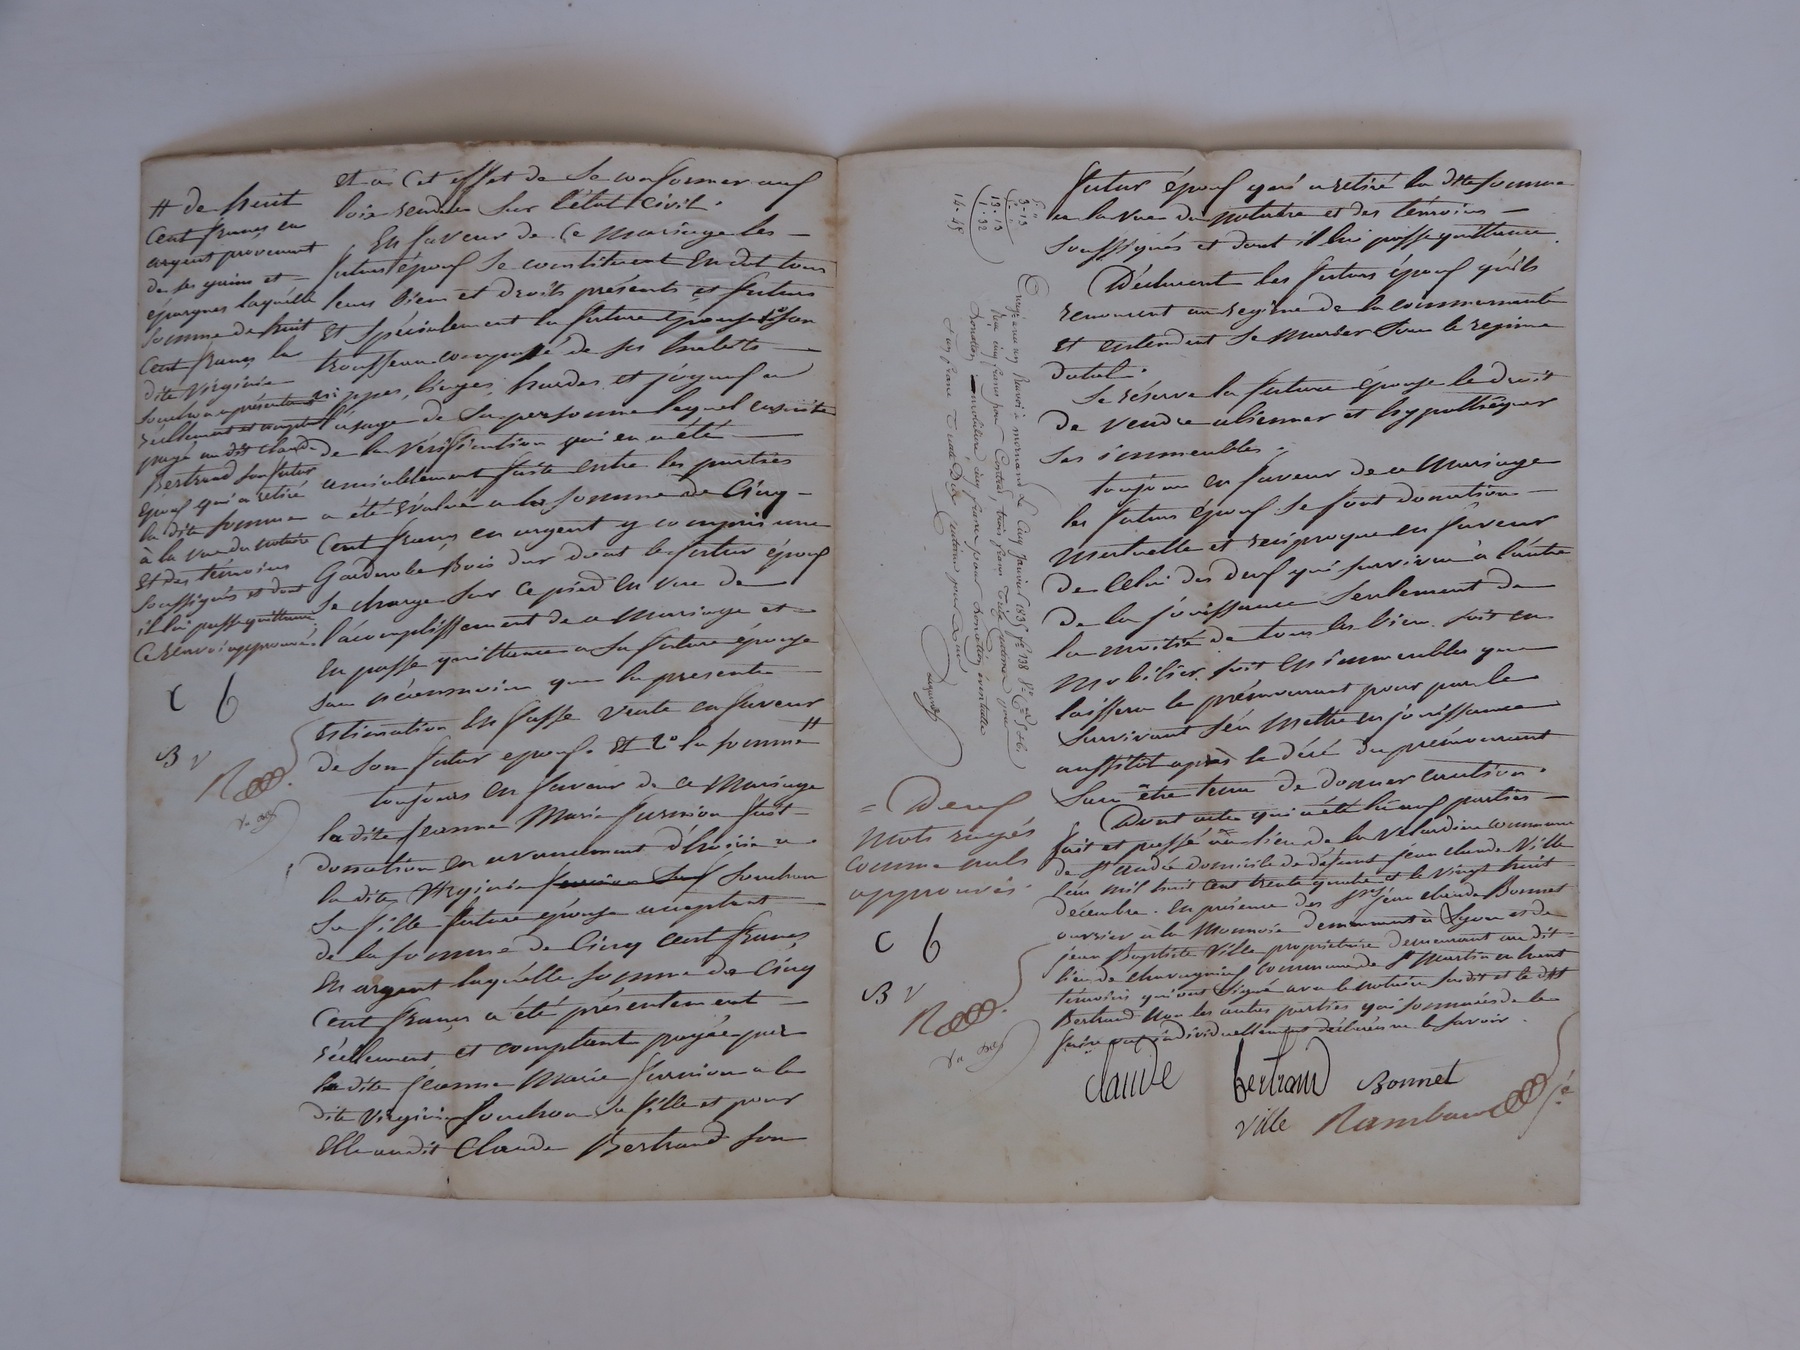 et a cet effet de se conformer auf
loix rendus sur l'état civil.
En faveur de ce mariage les
futurs épouf se constituent En dot tous
leurs Biens et droits présents et futurs
Et spécialement la future Epouse 1° son
trousseau composé de ses
nippes, linges, hardes, et joyauf a
l'usage de sa personne lequel ensuite
de la vérification qui en a été
amiablement faite entre les parties
a été Evalué a la somme de Cinq
Cent francs en argent y compris une
Garderobe Bois dur dont le futur épouf
se charge sur ce pied En vue de
l'acomplissement de ce mariage et
En passe quittance a sa future épouse
sans néanmoins que la presente
Estimation En fasse vente en faveur
de son futur epouf. Et 2° la somme #
toujours en faveur de ce mariage
la dite Jeanne Marie furnion fait
donation en avancement d'hoirie a
la dite Virginie Souchon
sa fille future épouse acceptant
de la somme de Cinq Cent francs
En argent laquelle somme de Cinq
Cent francs a été présentement
réellement et comptant payée par
la dite Jeanne Marie furnion a la
dite Virginie Souchon sa fille et pour
Elle au dit Claude Bertrand son
# de huit
Cent francs en
argent provenant
de ses gains et
épargnes laquelle
somme de huit
Cent francs la
dite Virginie
Souchon a présentement
réellement et comptant
payé au dit Claude
Bertrand son futur
épouf qui a retiré
la dite somme
à la vue du notaire
Et des témoins
soussignés et dont
il lui passe quittance
Ce renvoi approuvé.
C b
B V
futur épouf qui a retiré la dite somme
a la vue du notaire et des témoins
soussignés et dont il lui passe quittance.
Déclarent les futurs épouf qu'ils
renoncent au regime de la communauté
et entendent se marier sous le regime
dotal.
Se réserve la future épouse le droit
de vendre aliener et hypothéquer
ses immeubles.
toujours en faveur de ce mariage
les futurs épouf se font donation
Mutuelle et réciproque en faveur
de Celui des deuf qui survivra à l'autre
de la jouissance seulement de
la moitié de tous les biens soit en
Mobilier soit En immeubles que
laissera le prémourant pour par le
survivant s'en mettre en jouissance
aussitot après le décé du prémourant
sans être tenu de donner caution.
Dont acte qui a été lu auf parties
fait et passé au lieu de la Valardine commune
de St andéa domicile de défunt Jean Claude Ville
l'an mil huit cent trente quatre et le vingt huit
décembre. En présence des Srs Jean Claude Bonnet
ouvrier à la Monnoie demeurant à Lyon et de
Jean Baptiste Ville propriétaire demeurant au dit
lieu de commune de St Martin en haut
témoins qui ont signé avec le notaire susdit et le dit
Bertrand Non les autres parties qui sommées de le
faire ont individuellement déclaré ne le savoir.
Claude bertrand Bonnet
Ville Rambaud
3-13
13-13
1-32
14-45
Enregistré un Renvoi à mornand Le Cinq Janvier 1835 fo 138
Reçu cinq francs pour Contrat, trois francs
donation mobilière, cinq francs pour donation éventuelle
= Deuf
Mots rayés
comme nuls
approuvés.
C b
B V